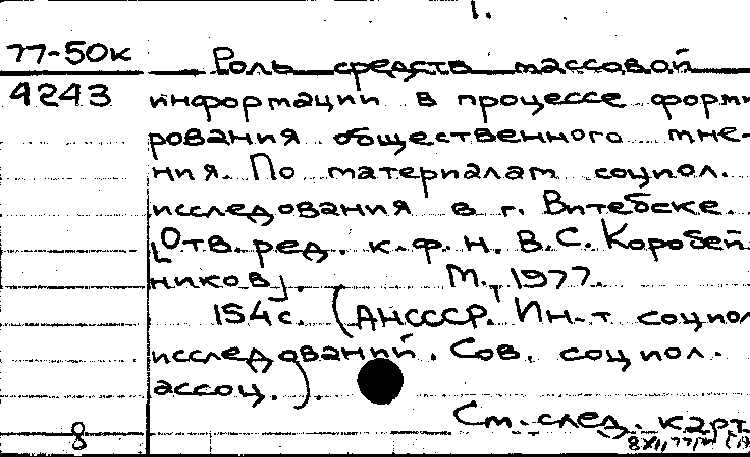 1.
77-50к Роль средств массовой
4243 информации в процессе форми
рования общественного мне-
ния. По материалам социол.
исследования в г. Витебске.
[Отв. ред. к.ф.н. В.С. Коробей
ников]. М., 1977.
154с. (АНСССР. Ин-т социол
исследований. Сов. социол.
ассоц.).
См. след. карт
8